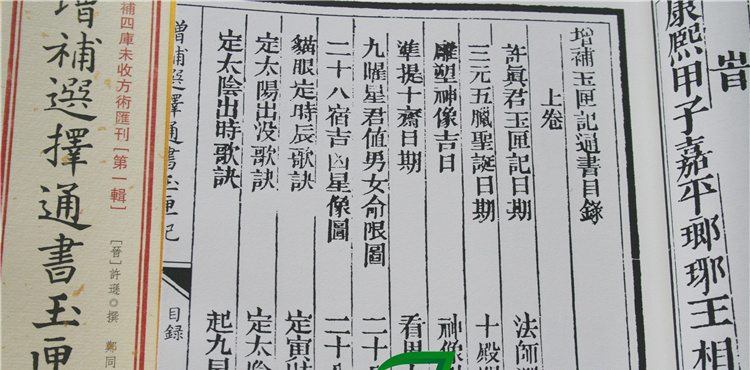 旹
康熙甲子嘉平瑯琊王相
增補玉匣記通書目錄
上卷
許眞君玉匣記日期 法師
三元五臘聖誕日期 十殿
雕塑神像吉日 神像
準提十齋日期 看男
九曜星君値男女命限圖 二十
二十八宿吉凶星像圖 二十
貓眼定時辰歌訣 定寅時
定太陽出没歌訣 定太陰
定太陰出時歌訣 起九星
增補選擇通書玉匣記 目錄
補四庫未收方術匯刊[第一輯]
[晉]許遜◎撰 鄭同
增補選擇通書玉匣